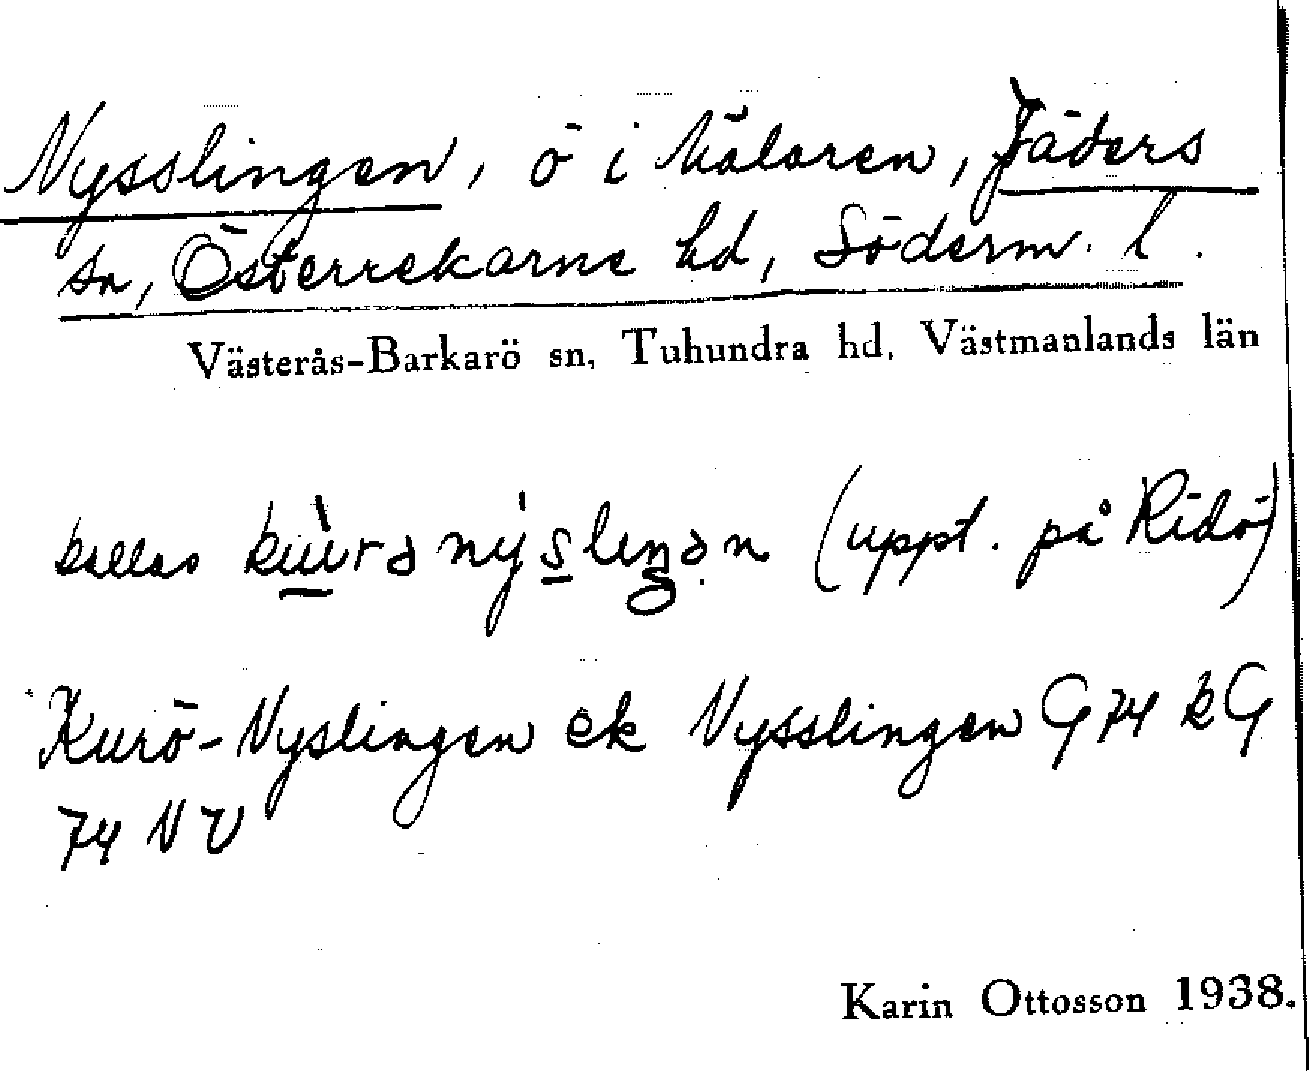 Nysslingen, ö i Mälaren, Jäders
sn, Österrekarne hd, Söderm. l.
Västerås-Barkarö sn, Tuhundra hd, Västmanlands län
kallas (uppt. på Ridö)
Kurö-Nyslingen ek Nysslingen G 74 k G
74 N V
Karin Ottosson 1938.